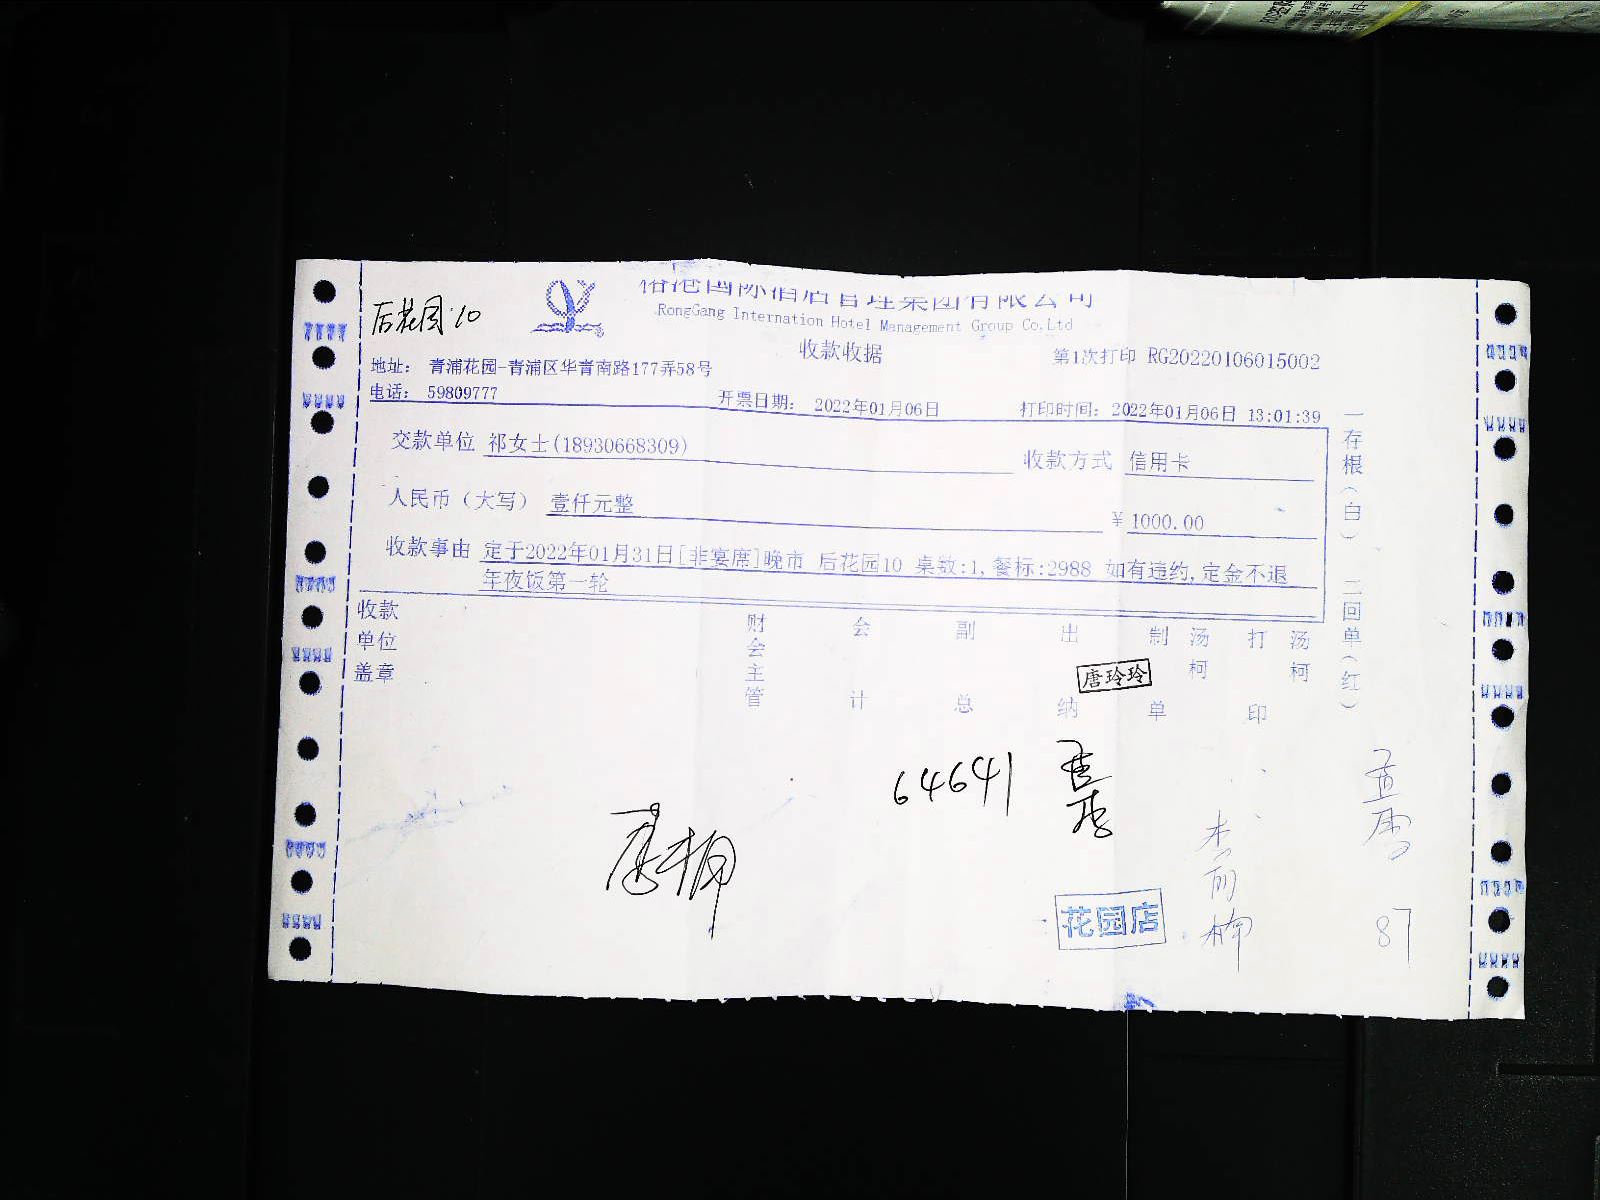 后花园10
榕港国际酒店管理集团有限公司
RongGang Internation Hotel Management Group Co.Ltd
收款收据
第1次打印 RG20220106015002
地址： 青浦花园-青浦区华青南路177弄58号
电话： 59809777
开票日期： 2022年01月06日
打印时间：2022年01月06日 13:01:39
交款单位 祁女士(18930668309)
收款方式 信用卡
人民币（大写） 壹仟元整
￥ 1000.00
收款事由 定于2022年01月31日[非宴席]晚市 后花园10 桌数:1,餐标:2988 如有违约,定金不退
年夜饭第一轮
一存根（白） 二回单（红）
收款单位盖章
财会主管
会计
副总
出纳
唐玲玲
制单 汤柯
打印 汤柯
64641
花园店
87